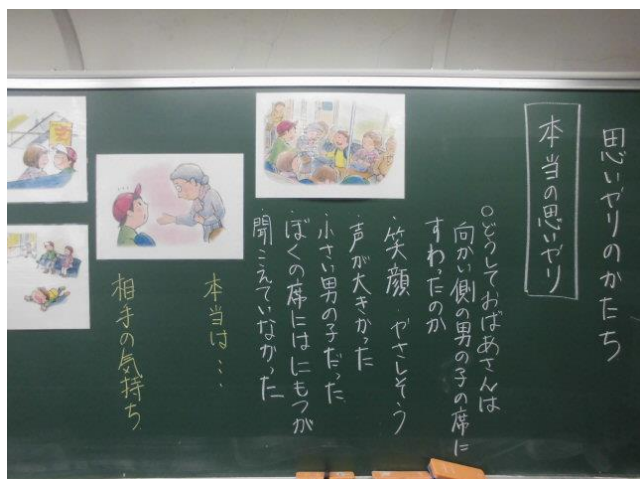 思いやりのかたち
本当の思いやり
○どうしておばあさんは
向かい側の男の子の席に
すわったのか
・笑顔 やさしそう
・声が大きかった
・小さい男の子だった
・ぼくの席にはにもつが
聞こえていなかった
本当は…
相手の気持ち